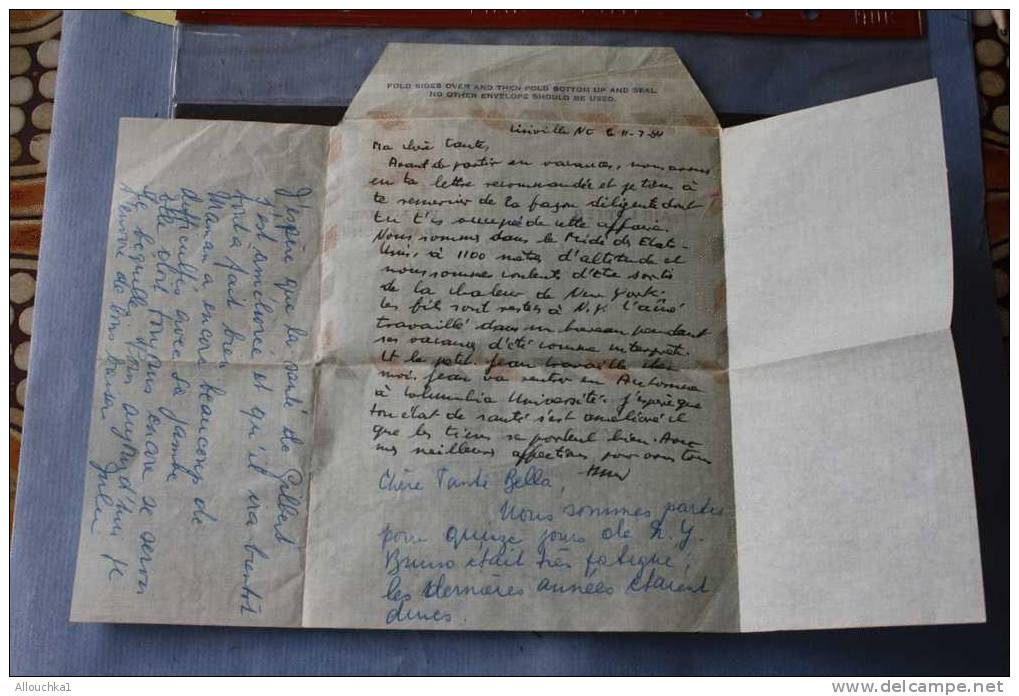 FOLD SIDES OVER AND THEN FOLD BOTTOM UP AND SEAL
NO OTHER ENVELOPE SHOULD BE USED.
Linville NC le 11-7-54
Ma chère tante,
Avant de partir en vacances, nous avons
eu ta lettre recommandée et je tiens à
te remercier de la façon diligente dont
tu t'es occupée de cette affaire.
Nous sommes dans le Midi des Etats-
Unis, à 1100 mètres d'altitude et
nous sommes contents d'être sorti
de la chaleur de New York.
Les fils sont restés à N.Y. L'aîné
travaille dans un bureau pendant
ses vacances d'été comme interprète.
Et le petit Jean travaille chez
moi. Jean va rentrer en Automne
à Columbia Université. J'espère que
ton état de santé s'est amélioré et
que les tiens se portent bien. Avec
mes meilleurs affections pour vous tous
Chère Tante Bella,
Nous sommes partis
pour quinze jours de N.Y.
Bruno était très fatigué ;
les dernières années étaient
dures.
J'espère que la santé de Gilbert
s'est améliorée et qu'il ira bientôt
tout à fait bien.
Maman a encore beaucoup de
difficultés avec sa jambe
elle doit toujours encore se servir
de béquilles. Pour aujourd'hui je
t'envoie de bons baisers